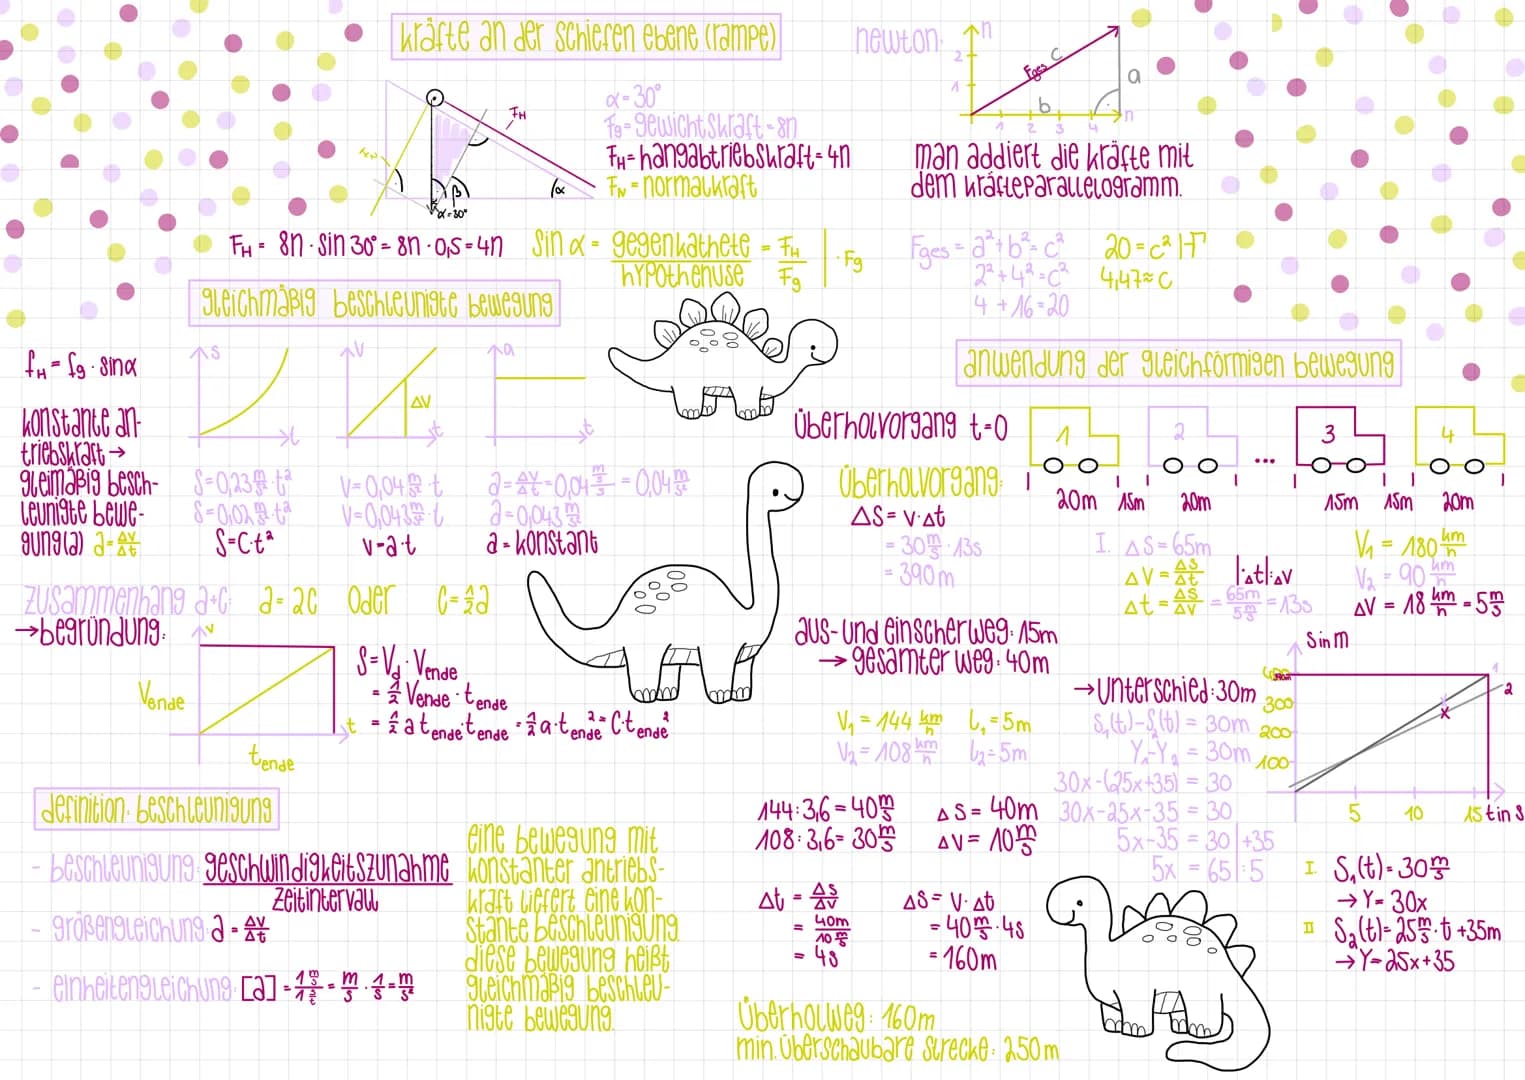 kräfte an der schiefen ebene (rampe)
α = 30°
Fg = gewichtskraft = 8n
FH = hangabtriebskraft = 4n
FN = normalkraft
FH
FN
β
α
α = 30°
FH = 8n · sin 30° = 8n · 0,5 = 4n
sin α = gegenkathete / hypothenuse = FH / Fg | · Fg
newton:
n
2
1
Fges
c
a
b
1 2 3 4
n
man addiert die kräfte mit
dem kräfteparallelogramm.
Fges = a² + b² = c²
2² + 4² = c²
4 + 16 = 20
20 = c² | √
4,47 ≈ c
gleichmäßig beschleunigte bewegung
fH = fg · sin α
konstante an-
triebskraft →
gleimäßig besch-
leunigte bewe-
gung (a) a = Δv/Δt
s
t
v
Δv
t
a
t
s = 0,23 m/s² · t²
s = 0,02 m/s² · t²
s = c · t²
v = 0,04 m/s² · t
v = 0,043 m/s² · t
v = a · t
a = Δv/Δt = 0,04 m/s/s = 0,04 m/s²
a = 0,043 m/s²
a = konstant
zusammenhang a + c: a = 2c oder c = ½a
→ begründung:
v
vende
t
tende
s = vd · vende
= ½ vende · tende
= ½ a tende · tende = ½ a · tende² = c · tende²
definition: beschleunigung
- beschleunigung: geschwindigkeitszunahme / zeitintervall
- größengleichung: a = Δv/Δt
- einheitengleichung: [a] = = m/s · 1/s = m/s²
eine bewegung mit
konstanter antriebs-
kraft liefert eine kon-
stante beschleunigung.
diese bewegung heißt
gleichmäßig beschleu-
nigte bewegung.
anwendung der gleichförmigen bewegung
überholvorgang t=0
1 2 ... 3 4
20m 15m 20m 15m 15m 20m
überholvorgang:
Δs = v · Δt
= 30 m/s · 13s
= 390m
I. Δs = 65m
Δv = Δs/Δt | · Δt | : Δv
Δt = Δs/Δv = 65m / 5 m/s = 13s
v1 = 180 km/h
v2 = 90 km/h
Δv = 18 km/h = 5 m/s
aus- und einscherweg: 15m
→ gesamter weg: 40m
v1 = 144 km/h l1 = 5m
v2 = 108 km/h l2 = 5m
144 : 3,6 = 40 m/s Δs = 40m
108 : 3,6 = 30 m/s Δv = 10 m/s
Δt = Δs/Δv
= 40m / 10 m/s
= 4s
Δs = v · Δt
= 40 m/s · 4s
= 160m
überholweg: 160m
min. überschaubare strecke: 250m
→ unterschied: 30m
s1(t) - s2(t) = 30m
y1 - y2 = 30m
30x - (25x+35) = 30
30x - 25x - 35 = 30
5x - 35 = 30 | +35
5x = 65 | : 5
s in m
300
200
100
5 10 15 t in s
1
2
x
I. s1(t) = 30 m/s
→ y = 30x
II s2(t) = 25 m/s · t + 35m
→ y = 25x + 35